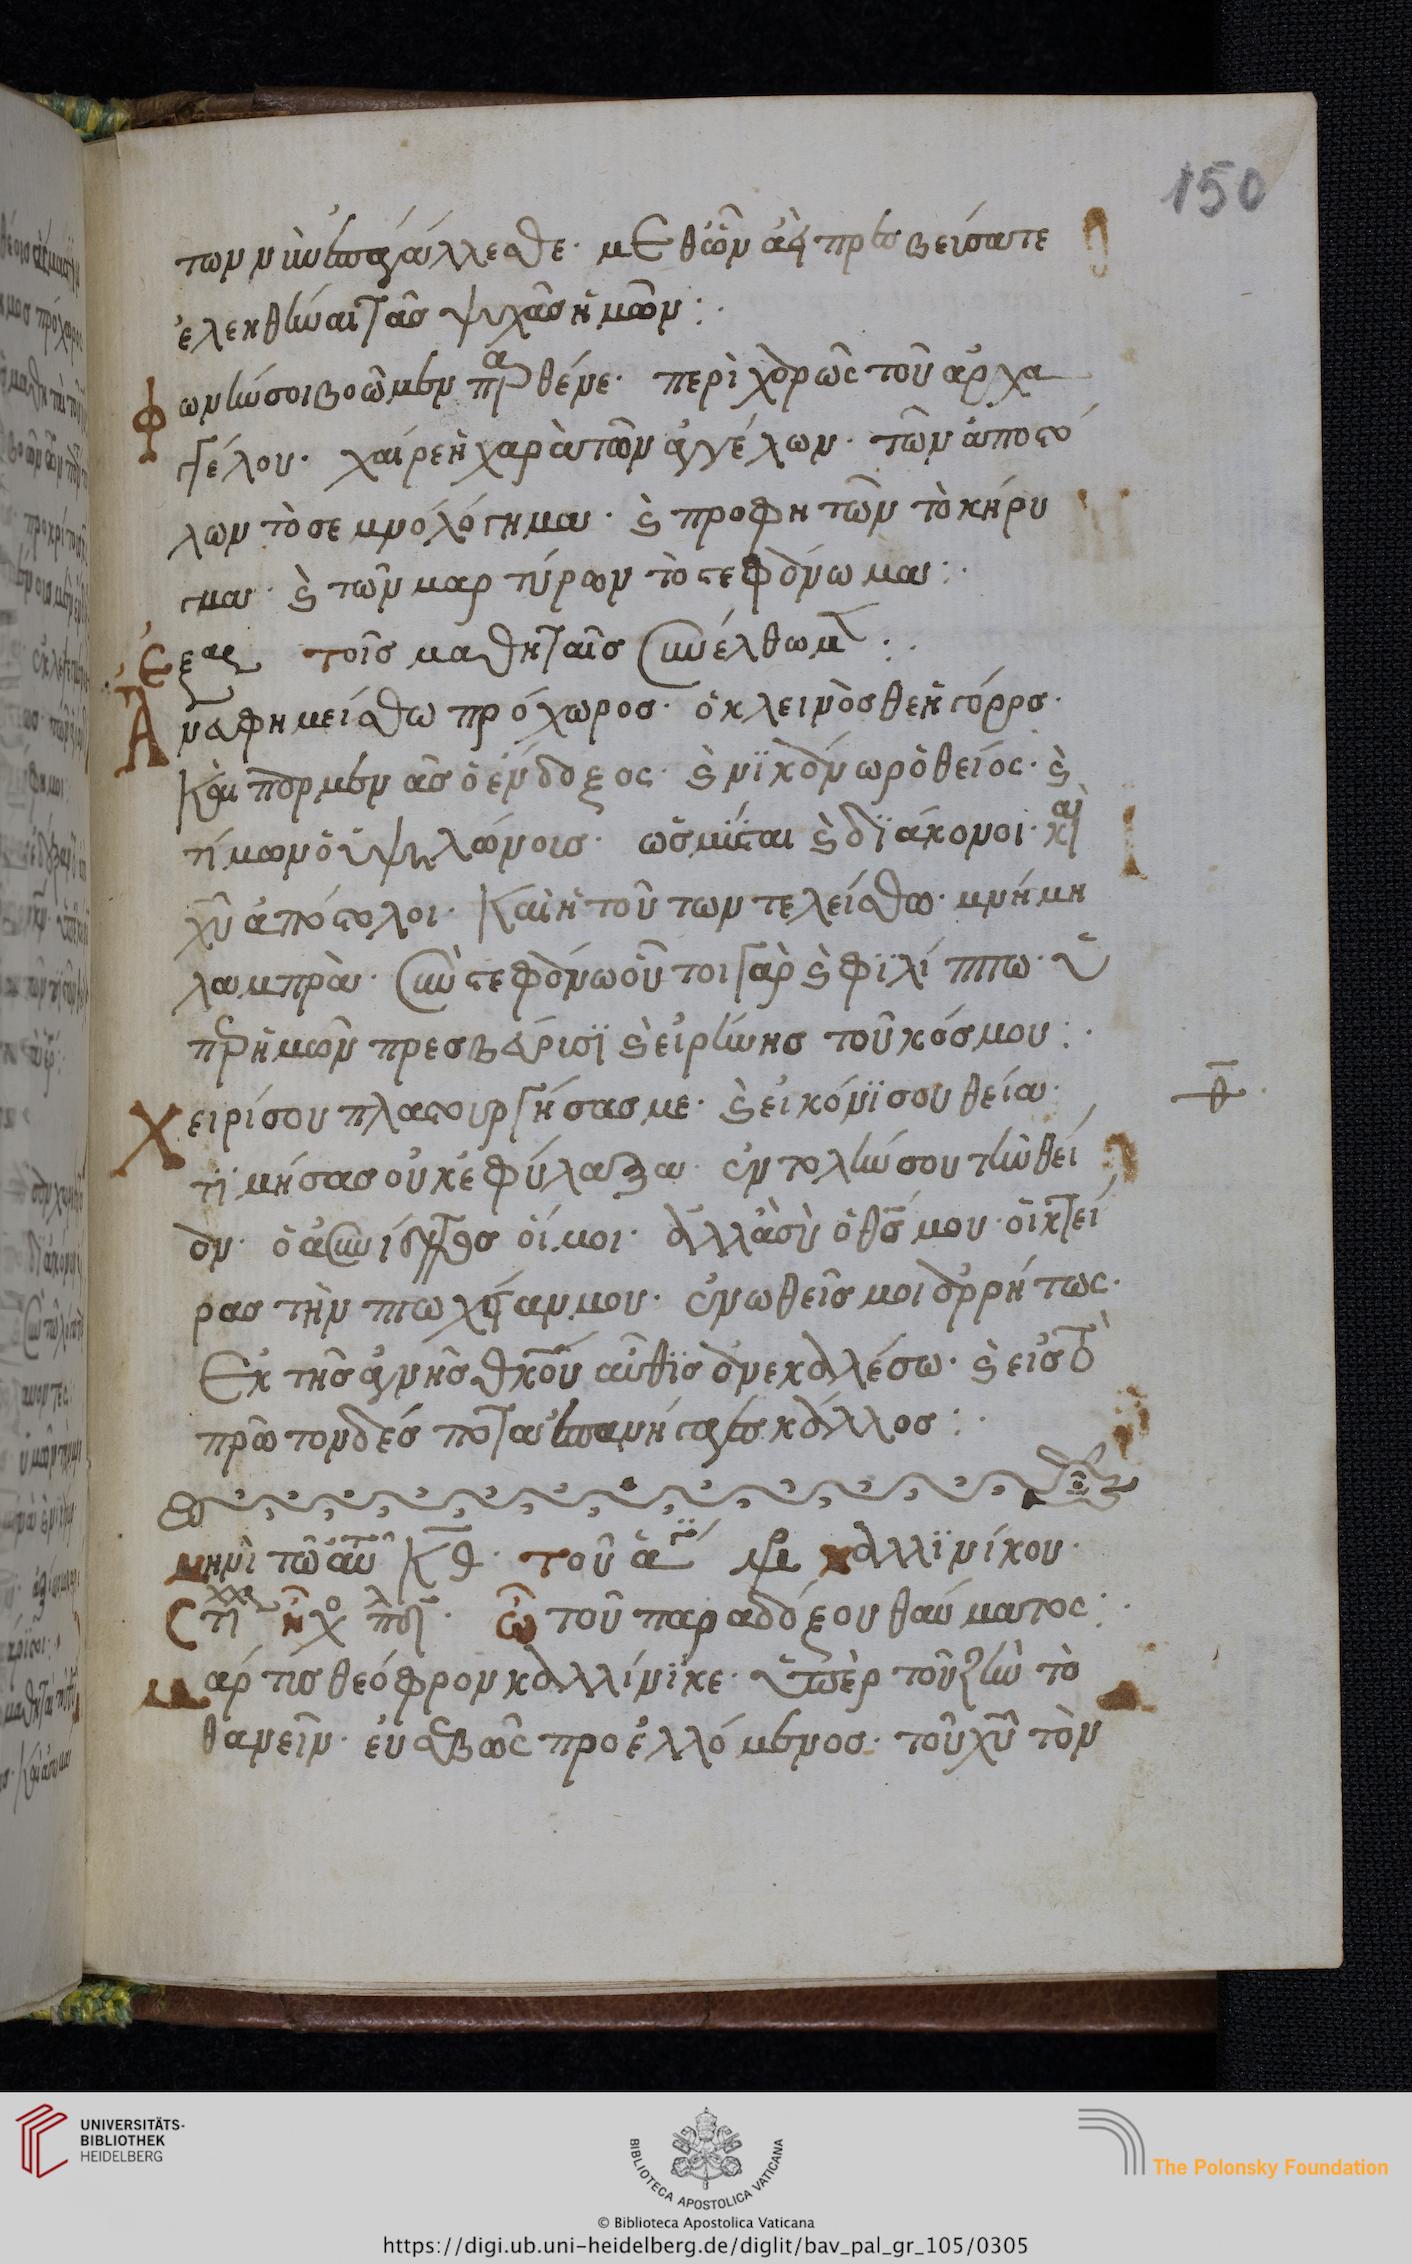 150
των νῦν ἐπαγάλλεσθε· μεθ ὧν ἀεὶ πρεσβείσατε
ἐλεηθῆναι τὰς ψυχὰς ἡμῶν:·
Φωνήσοι βοῶμεν παρθένε· περιχαρῶς τοῦ ἀρχα
γγέλου· χαίρε ἡ χαρὰ τῶν ἀγγέλων· τῶν ἀποστό
λων τὸ σεμνολόγημα· καὶ προφητῶν τὸ κήρυ
γμα· καὶ τῶν μαρτύρων τὸ στεφάνωμα:·
τοῖς μαθηταῖς συνέλθωμεν:·
Ἀνευφημείσθω πρόχωρος· ὁ κλεινὸς θεηγόρος·
Καὶ παρμενᾶς ὁ ἔνδοξος· καὶ νϊκάνωρ ὁ θείος· καὶ
τίμων ὁ ὑψηλώνοις· ὡς μύσται καὶ δϊάκονοι· καὶ
χυ ἀπόστολοι· Καὶ ἡ τούτων τελείσθω· μνήμη
λαμπρὰ· σὺν στεφάνω οὗτοι γὰρ καὶ φϊλίππω· ὑ
πὲρ ἡμῶν πρεσβεύουσϊ καὶ εἰρήνης τοῦ κόσμου:·
Χειρί σου πλαστουργήσας με· καὶ εἰκόνϊ σου θεία·
θ
τϊμήσας οὐκ ἐφύλαξα· ἐντολήν σου τὴν θεί
αν· ὁ ἀσυνίδητος οἴμοι· ἀλλὰ σὺ ὁ θσ μου· οἰκτεί
ρας τὴν πτωχείαν μου· ἑνωθεῖς μοι ἀρρήτως·
Ἐκ τῆς ἁγνῆς θκου αὖθϊς ἀνεκαλέσω· καὶ εἰς τὸ
πρῶτον δέσποτα ἐπανήγαγες κάλλος:·
μηνὶ τῶ αὐτῶ ΚΘ· τοῦ ἁγίου μρ καλλϊνίκου·
Στιχ ἦχο πδ· Ὢ τοῦ παραδόξου θαύματος:·
Μάρτις θεόφρον καλλίνϊκε· ὑπὲρ τοῦ ζῆν τὸ
θανεῖν· εὐσεβῶς προελλόμενος· τοῦ χυ τὸν
UNIVERSITÄTS-
BIBLIOTHEK
HEIDELBERG
BIBLIOTECA APOSTOLICA VATICANA
© Biblioteca Apostolica Vaticana
The Polonsky Foundation
https://digi.ub.uni-heidelberg.de/diglit/bav_pal_gr_105/0305